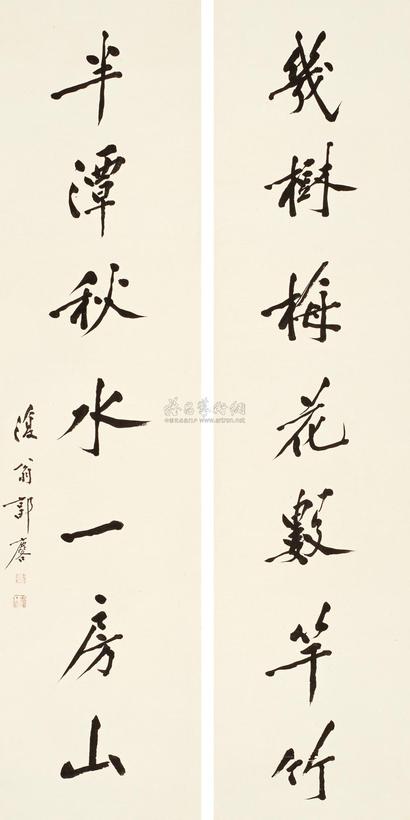 幾樹梅花數竿竹
半潭秋水一房山
復翁郭麐
www.artron.net